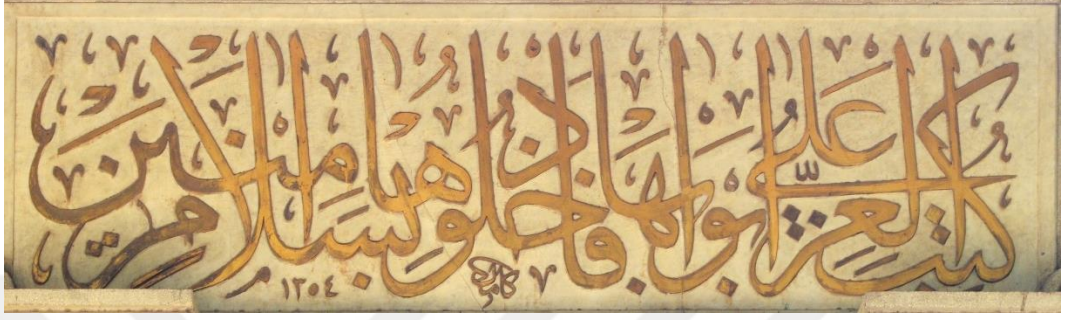 كتب العز على ابوابها فادخلوها بسلام امنين
١٢٥٤